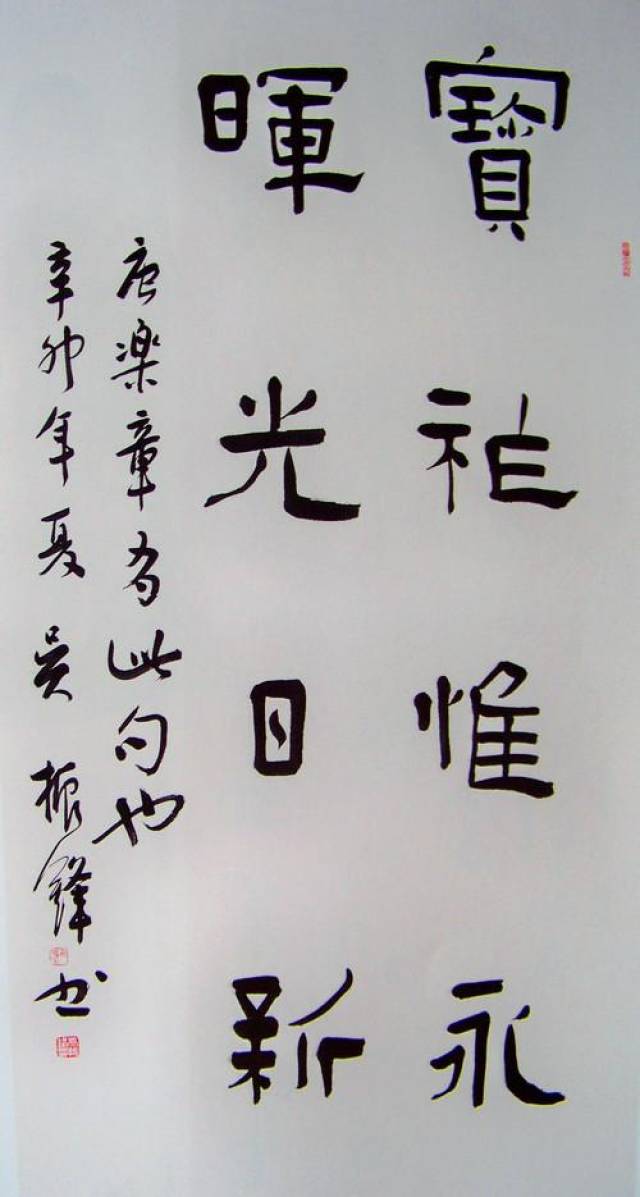 寶祚惟永
暉光日新
唐樂章有此句也
辛卯年夏吴振鋒书